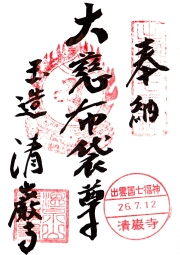 奉納
大慈布袋尊
玉造
清巌寺
出雲国七福神
26.7.12
清巌寺